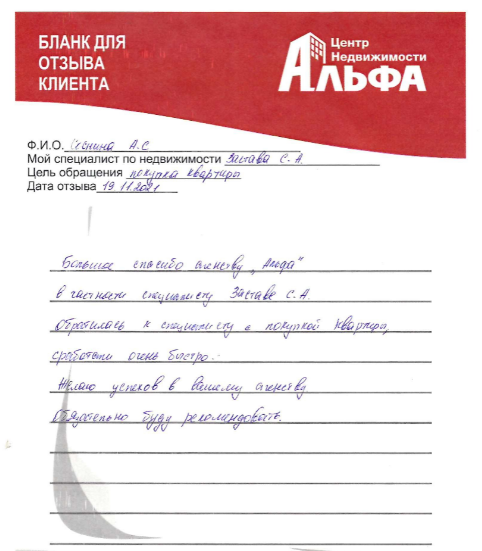 БЛАНК ДЛЯ
ОТЗЫВА
КЛИЕНТА
Центр
Недвижимости
АЛЬФА
Ф.И.О. А.С
Мой специалист по недвижимости Застава С.А.
Цель обращения покупка квартиры
Дата отзыва 19.11.2021
Большое спасибо агенству „Альфа"
в частности специалисту Заставе С.А.
Обратилась к специалисту с покупкой квартиры,
сработали очень быстро.
Желаю успехов в вашему агенству
Обязательно буду рекомендовать.